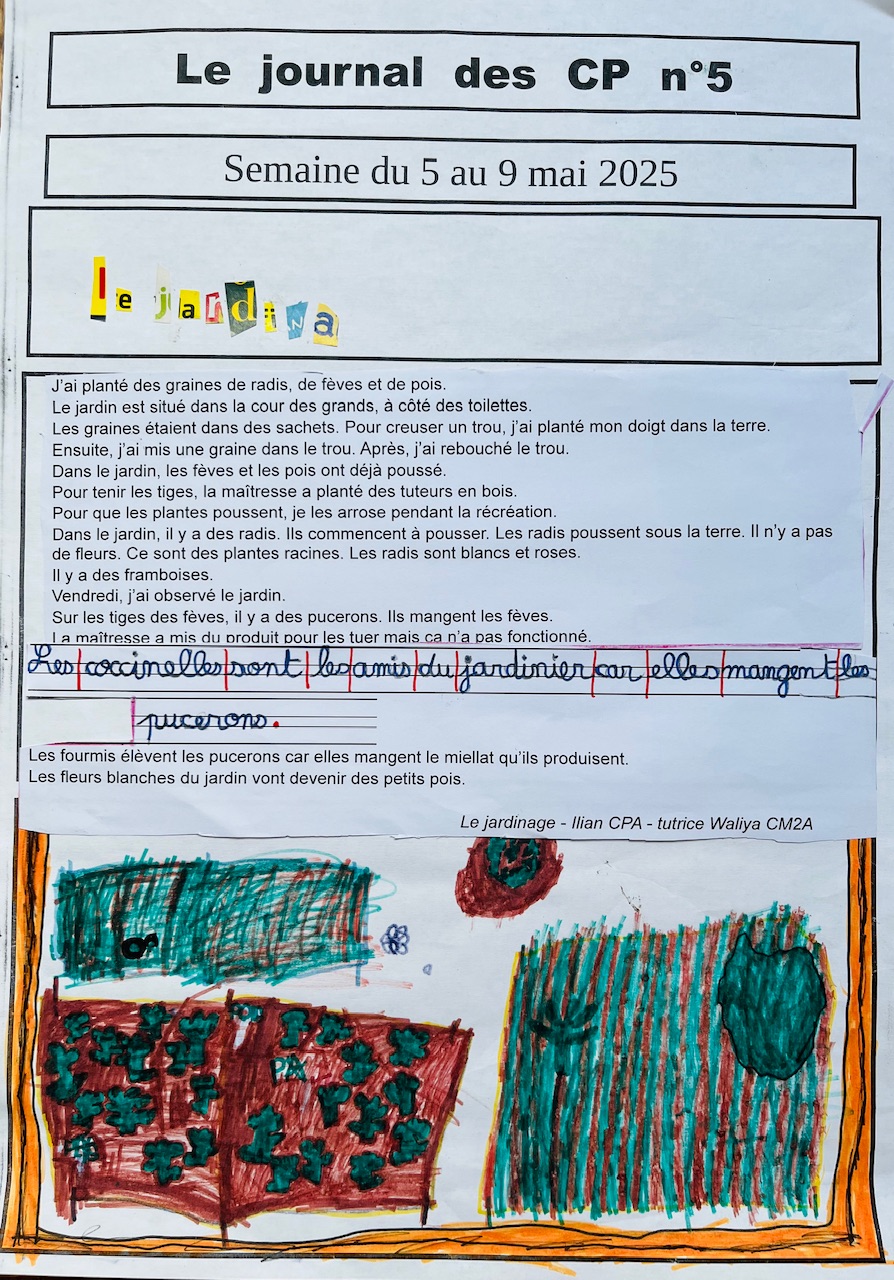 Le journal des CP n°5
Semaine du 5 au 9 mai 2025
le jardina
J'ai planté des graines de radis, de fèves et de pois.
Le jardin est situé dans la cour des grands, à côté des toilettes.
Les graines étaient dans des sachets. Pour creuser un trou, j'ai planté mon doigt dans la terre.
Ensuite, j'ai mis une graine dans le trou. Après, j'ai rebouché le trou.
Dans le jardin, les fèves et les pois ont déjà poussé.
Pour tenir les tiges, la maîtresse a planté des tuteurs en bois.
Pour que les plantes poussent, je les arrose pendant la récréation.
Dans le jardin, il y a des radis. Ils commencent à pousser. Les radis poussent sous la terre. Il n'y a pas
de fleurs. Ce sont des plantes racines. Les radis sont blancs et roses.
Il y a des framboises.
Vendredi, j'ai observé le jardin.
Sur les tiges des fèves, il y a des pucerons. Ils mangent les fèves.
La maîtresse a mis du produit pour les tuer mais ça n'a pas fonctionné.
Les coccinelles sont les amis du jardinier car elles mangent les
pucerons.
Les fourmis élèvent les pucerons car elles mangent le miellat qu'ils produisent.
Les fleurs blanches du jardin vont devenir des petits pois.
Le jardinage - Ilian CPA - tutrice Waliya CM2A